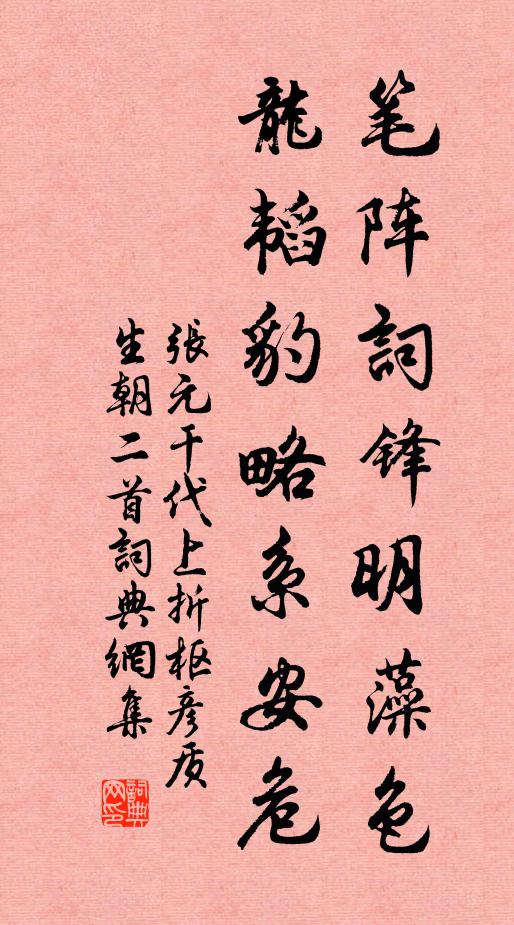 笔阵詞锋明藻色
龍韬豹略系安危
張元干代上折枢彦质
生朝二首詞典網集
詞典
网印